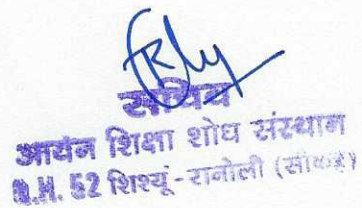 सचिव
आर्यन शिक्षा शोध संस्थान
N.H. 52 शिश्यूं - रानोली (सीकर)